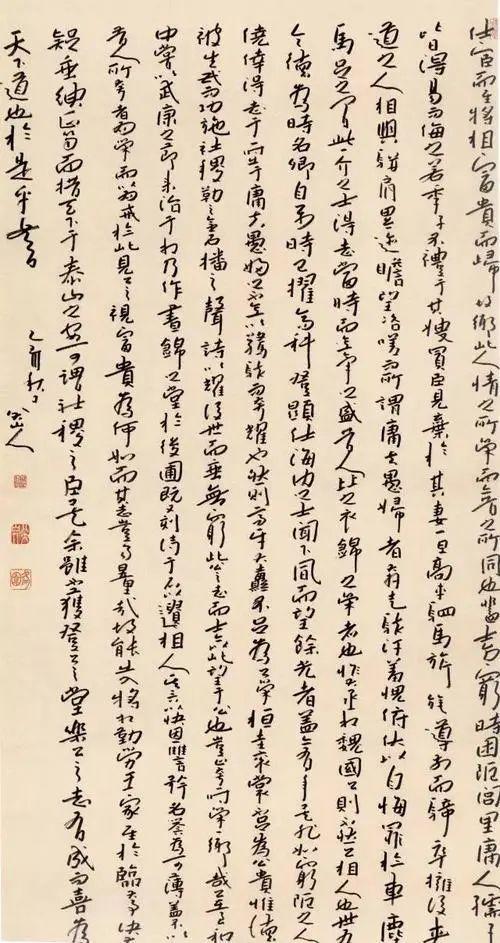 仕宦而至將相富貴而歸故鄉此人情之所榮而今昔之所同也當士方窮時阨閭里庸人孺子
皆得易而侮之若季子不禮于其嫂買臣見棄於其妻一旦高車駟馬旗旄導前而騎卒擁後夾
道之人相與騈肩累迹瞻望咨嗟而所謂庸夫愚婦者奔走駭汗羞愧俯伏以自悔罪於車塵
馬足之間此一介之士得志當時而意氣之盛昔人比之衣錦之榮者也惟大丞相魏國公則不然公相人也世有
令德為時名卿自公少時已擢高科登顯仕海內之士聞下風而望餘光者蓋亦有年矣非如窮阨之人
僥倖得志于一時出于庸夫愚婦之不意以驚駭而夸耀之也然則高牙大纛不足為公榮桓圭袞裳不足為公貴惟德
被生民而功施社稷勒之金石播之聲詩以耀後世而垂無窮此公之志而士亦以此望于公也豈止夸一時榮一鄉哉公在至和
中嘗以武康之節來治于相乃作晝錦之堂於後圃既又刻詩于石以遺相人其言以快恩讎矜名譽為可薄蓋不以
昔人所夸者為榮而以為戒於此見公之視富貴為何如而其志豈易量哉故能出入將相勤勞王家至於臨大事決大
議垂紳正笏而措天下于泰山之安可謂社稷之臣矣余雖不獲登公之堂樂公之志有成而喜為
天下道也於是乎書
乙亥秋日 八大山人